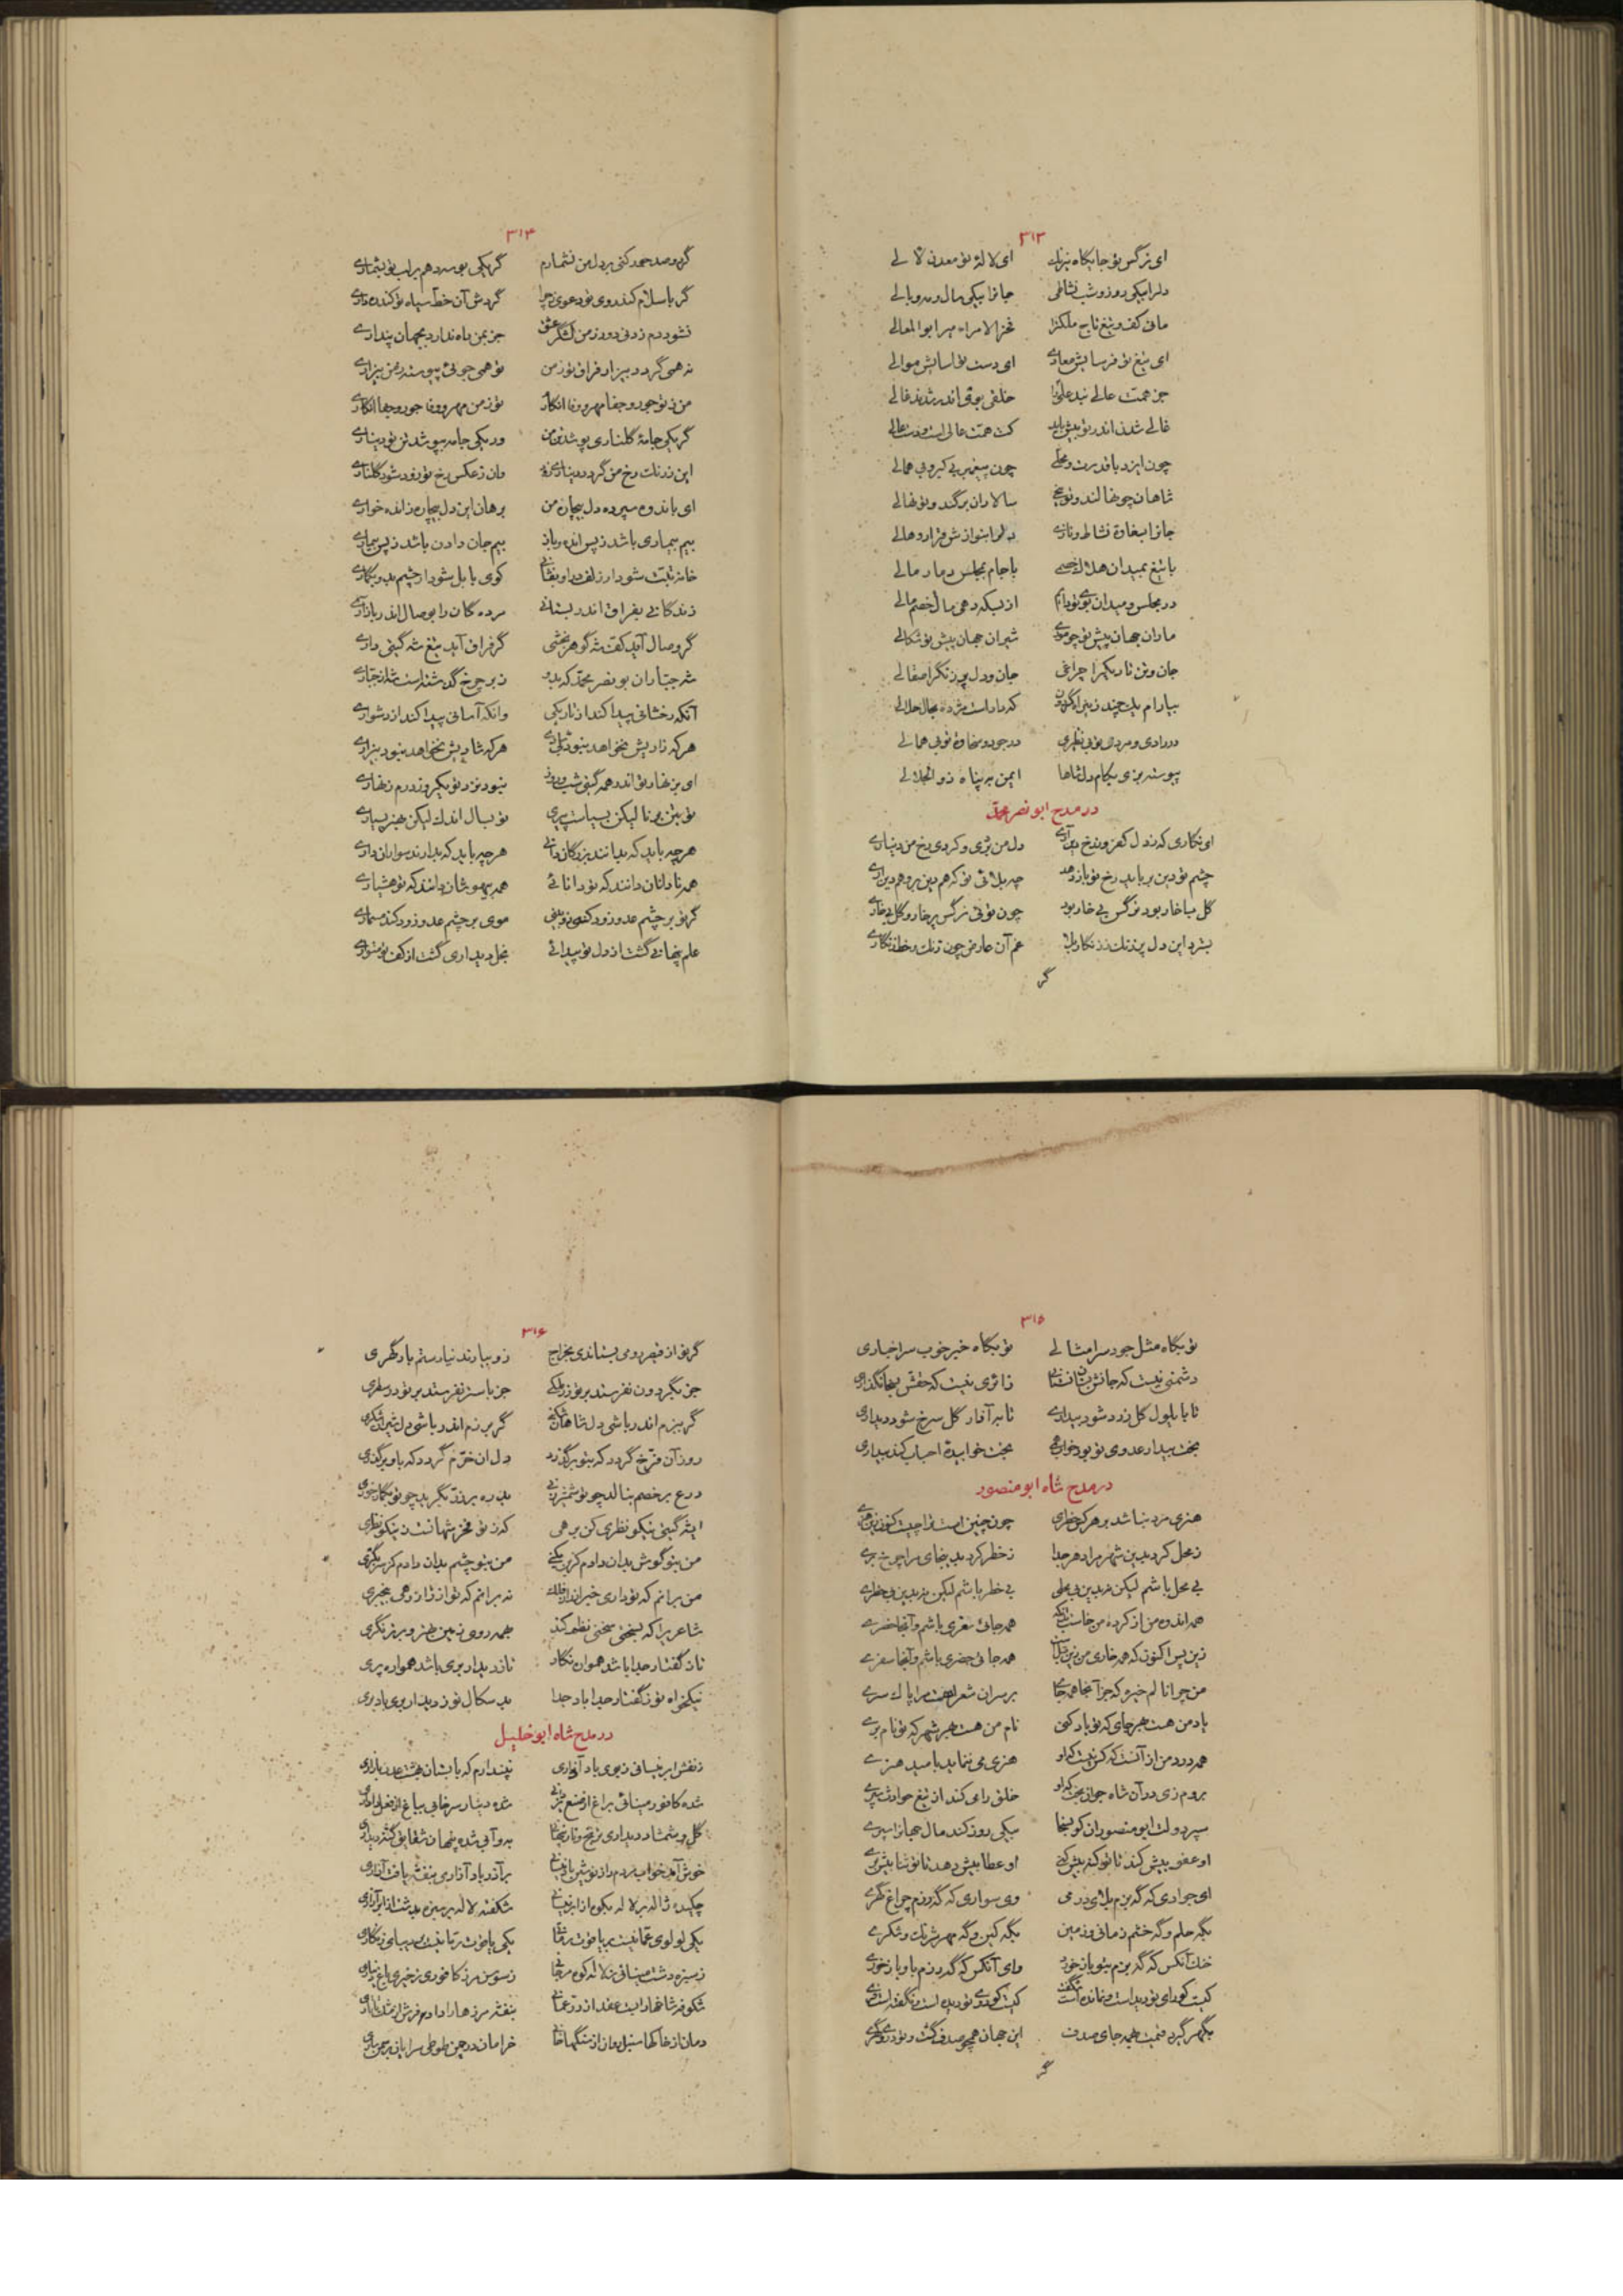 ۳۱۳
ای نرگس تو جایگاه نیرنگ ای لاله تو معدن لالی
دلرا بیکی روز و شب نشاطی جانرا بیکی مال و مه وبالی
مانی کف و تیغ تاج ملکرا فخر الامراء میر ابوالمعالی
ای تیغ تو فرسایش معادی ای دست تو اسایش موالی
جز همت عالی خلقی بوفا اندر شدند غالی
غالی شدن اندر تو بیش باید کت همت عالی است و دست عالی
چون ایزد با قدرت و محلی چون پیغمبر بی کبر و بی همالی
شاهان چو نهالند و تو سالاران برگند و تو نهالی
جانرا بسخاوة نشاط و نازی دلرا بنوازش قرار و هالی
با تیغ بمیدان هلاک خصمی با جام بمجلس دمار مالی
در مجلس و میدان بوی تو دایم از بسکه دهی مال خصم مالی
ماران جهان پیش تو چو موری شیران جهان پیش تو شکالی
جان و تن تاریکرا چراغی جان و دل پر زنگرا صقالی
بیارام یک چند که دادست مژده بحال حالی
در رادی و مردی تو بی نظیری در جود و سخاوة تو بی همالی
پیوسته بزی بکام دل شاها ایمن به پناه ذوالجلالی
در مدح ابونصر محمد
ای نگاری که ز دل کفر و ز رخ دین آری دل من بری و کردی رخ من دیناری
چشم تو دین برباید رخ تو باز دهد چه بلائی تو که هم دین بر و هم دین آری
گل با خار بود نرگس بی خار بود چون توئی نرگس پر خار و گل بی خاری
بسترد این دل پر زنگ ز زنگار بلا غم آن عارض چون زنگ و خط زنگاری
گر
۳۱۴
گر دو صد جور کنی بر دل من نشمارم گر یکی بوسه دهم بر لب تو بشماری
گر باسلام کند روی تو دعوی چرا گردش آن خط سیاه تو کند زناری
نشود دم زدنی دور ز من لشگر عشق جز بمن راه ندارد بجهان پنداری
نه همی گردد بیزار فراق تو ز من تو همی جوئی پیوسته ز من بیزاری
من ز تو جور و جفا مهر و وفا انگارم تو ز من مهر و وفا جور و جفا انگاری
گر یکی جامه گلناری پوشد تن من ور یکی جامه بپوشد تن تو دیناری
این ز رنگ رخ من گردد دیناری زود وان ز عکس رخ تو زود شود گلناری
ای باندوه سپرده دل بیچاره من برهان این دل بیچاره ز انده خواری
بیم بیماری باشد ز پس انده و باز بیم جان دادن باشد ز پس بیماری
خانه تبت شود از زلف کوی بابل شود از چشم بد و بیکاری
زندگانی بفراق اندر بستانی مرده گان را بوصال اندر باز آری
گر وصال آید کف شه گوهر بخشی گر فراق آید تیغ شه گیتی داری
شه جستان بونصر محمد که بدو ز بر چرخ گذشته است
آنکه رخشانی پیدا کند از تاریکی وانکه آسانی پیدا کند از دشواری
هر که زادیش نخواهد نبود هر که شادیش نخواهد نبود بیزاری
ای بزنهار تو اندر همه گیتی شب و روز نبود نزد تو یکروز درم زنهاری
تو بتن برنا لیکن بسیاست پیری تو بسال اندک لیکن بهنر بسیاری
هر چه باید که بدانند بزرگان دانی هر چه باید که بدارند سواران داری
همه نادانان دانند که تو دانائی همه بیهوشان دانند که تو هشیاری
گر تو بر چشم عدو زود کنی موی بر چشم عدو زود کند مسماری
علم پنهانی گشت از دل تو پیدائی بخل دیداری گشت از کف تو متواری
۳۱۵
تو بگاه مثل جود سرامثالی تو بگاه خبر خوب سر اخباری
دشمنی نیست که جانش زائری نیست که حقش بسخا نگذاری
تا بایلول گل زرد شود دیداری تا بر آذار گل سرخ شود دیداری
بخت بیدار عدوی تو بود بخت خوابیدة احباب کند بیداری
در مدح شاه ابومنصور
هنری مرد نباشد بر هر کس خطری چون چنین است مرا چیست کنون زین هنری
ز محل کرد بدین شهر مرا دهر جدا ز خطر کرد بدینجای مرا چرخ بری
بی محل باشم لیکن نه بدین بی محلی بی خطر باشم لیکن نه بدین بی خطری
همه اندوه من از کرده من خاست همه جائی سفری باشم و آنجا حضری
زین پس اکنون که همه جائی حضری باشم و آنجا سفری
من چرا نالم خیره که جز آنجا همه جای بر سران شعرا هست مرا پاک سری
یاد من هست بهر جای که تو یاد کنی نام من هست بهر شهر که تو نام بری
همه درد من از آنست که کس نیست که او هنری می بنماید بامید هنری
بروم زی در آن شاه جوانبخت که او خلق را می کند از تیغ حوادث سپری
سپر دولت ابومنصور آن کو بسخا بیکی روز کند مال جهانرا سپری
او عفو بیش کند تا تو گنه بیش کنی او عطا بیش دهد تا تو ثنا بیش بری
ای جوادی که گه بزم بلای درمی وی سواری که گه رزم چراغ گهری
بگه حلم و گه خشم زمانی و زمین بگه کین و گه مهر شرنگ و شکری
خنک آنکس که گه بزم بتو باز خورد وای آنکس که گه رزم باو باز خوری
کیست کو رای تو دیده است و نمانده است شگفت کیست کو روی تو دیده است و نگفته است
بگهر گیرد قیمت همه جای صدف این جهان همچو صدف گشت و تو در وی گهری
گر
۳۱۶
گر تو از قیصر رومی بستاندی بخراج زو بیارند نیارستم یاد گهری
جز بگردون نفرستد بر تو زر ملکی جز باستر نفرستد بر تو در سفری
گر ببزم اندر باشی دل شاهان شکنی گر برزم اندر باشی دل شیران شکری
روز آن فرخ گردد که بتو برگذرد دل آن خرم گردد که باو برگذری
درع بر خصم بنالد چو تو شمشیر زنی بدره بر زر بگرید چو تو بگماز خوری
ایشه گیتی نیکو نظری کن بر هی که ز تو فخر شهانست ز نیکو نظری
من بتو گوش بدان دادم کم برکشی من بتو چشم بدان دادم کم بنگری
من برانم که تو داری خبر از راز فلک نه برانم که تو از زار رهی بیخبری
شاعر برا که بسختی سخنی نظم کند همه روی زمین طنز و برنگری
تا ز گفتار جدا باشد همواره نگار تا ز دیدار بری باشد همواره پری
نیکخواه تو ز گفتار جدا باد جدا بد سگال تو ز دیدار بری باد بری
در مدح شاه ابو خلیل
ز نقش ابر نیسانی ز بوی باد آذاری نپندارم که با بستان بهشت عدن
شده کافور مینائی براغ از صنع یزدانی شده دینار سرخابی بباغ از فعل داداری
گل و شمشاد دیداری
خوش آمد بر آذر باد آزاری بنفشه یافت
چکیده ژاله بر لاله بگونه از ابر نیسانی شکفته لاله بر سبزه بدشت از ابر آزاری
یکی لولوی عمانیست بر یاقوت رمانی یکی یاقوت رمانیست بر دیبای زنگاری
ز سبزه دشت مینائی ز لاله کوه مرجانی ز سوسن مرز کافوری ز خیری باغ دیناری
شکوفه شاخها را بست عقد از در عمانی بنفشه مرزها را داد فرش از
دمان از خاکها سنبل روان از سنگها خرامان در چمن طوطی سرایان بر سمن ساری